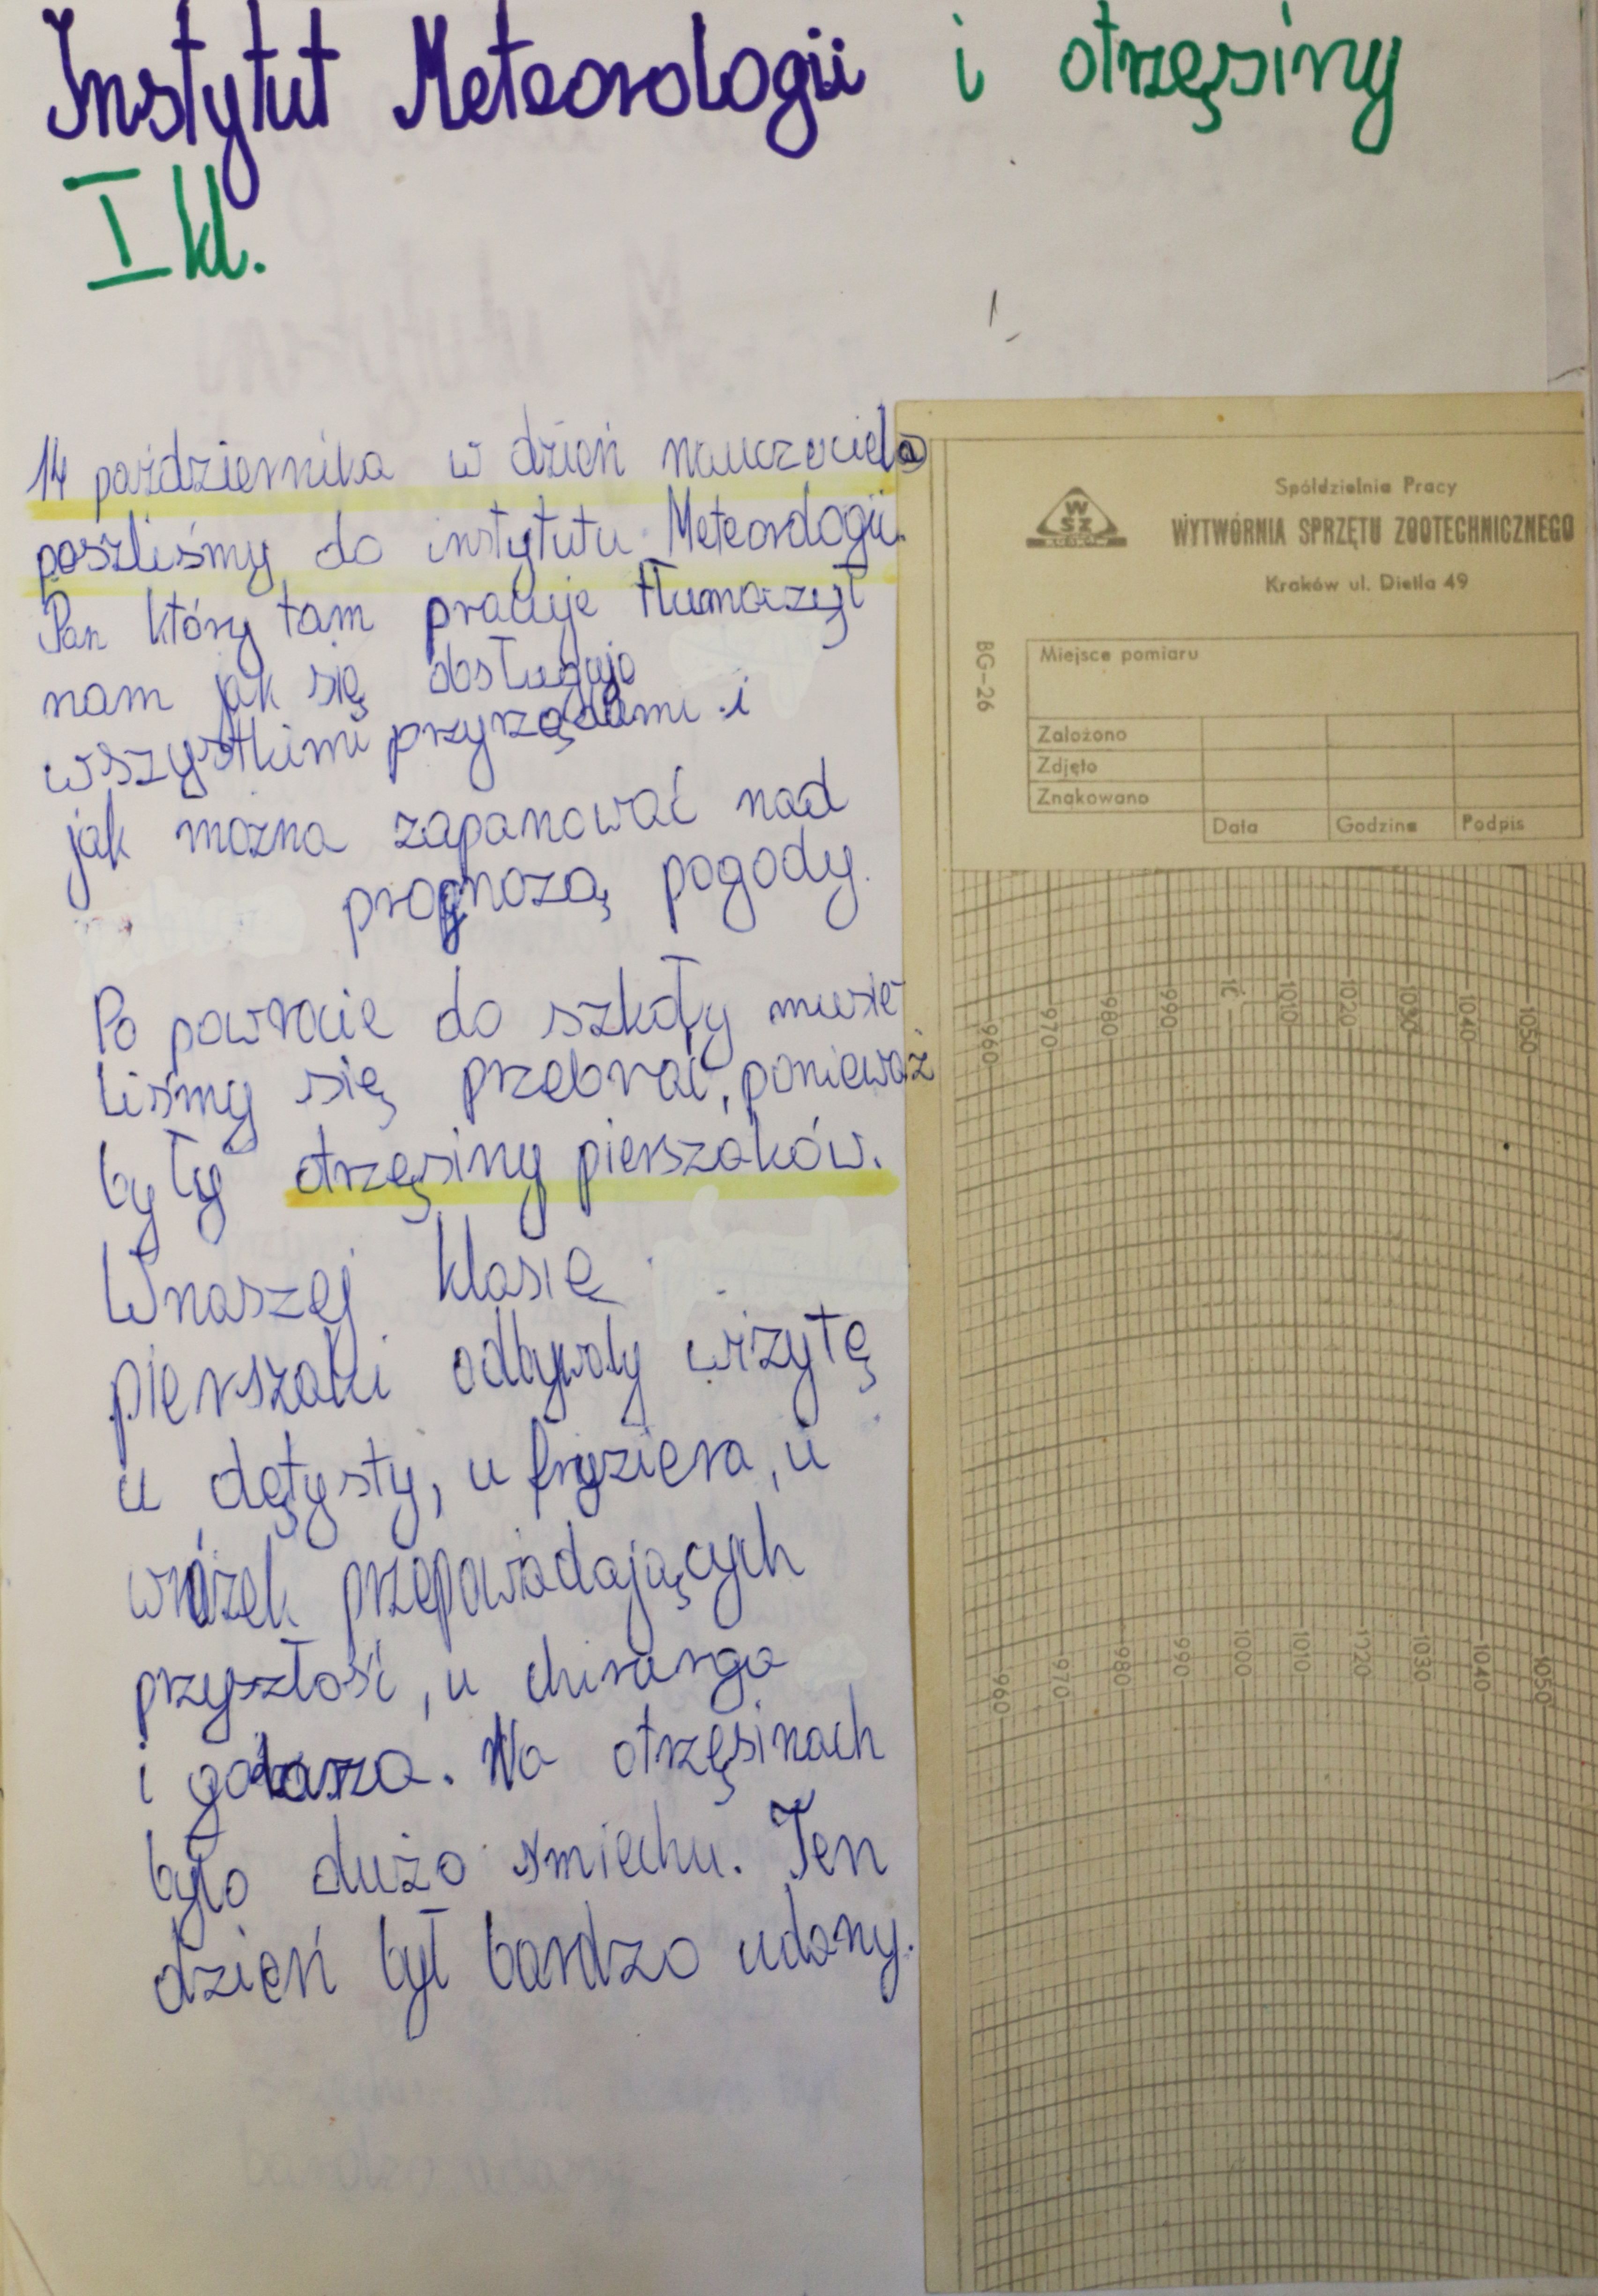 Instytut Meteorologii i otrzęsiny
I kl.
14 października w dzień nauczyciela
poszliśmy do instytutu Meteorologii.
Pan który tam pracuje tłumaczył
nam jak się obsługuje
wszystkimi przyrządami i
jak można zapanować nad
prognozą pogody.
Po powrocie do szkoły musie
liśmy się przebrać, ponieważ
były otrzęsiny pierszaków.
Wnaszej klasie
pierszaki odbywały wizytę
u dętysty, u fryziera, u
wróżek przepowiadających
przyszłość, u chirurga
i golarza. Na otrzęsinach
było dużo śmiechu. Ten
dzień był bardzo udany.
WSZ
KRAKÓW
Spółdzielnia Pracy
WYTWÓRNIA SPRZĘTU ZOOTECHNICZNEGO
Kraków ul. Dietla 49
BG-26
Miejsce pomiaru
Założono
Zdjęto
Znakowano
Data Godzina Podpis
960 970 980 990 1010 1020 1030 1040 1050
960 970 980 990 1000 1010 1020 1030 1040 1050